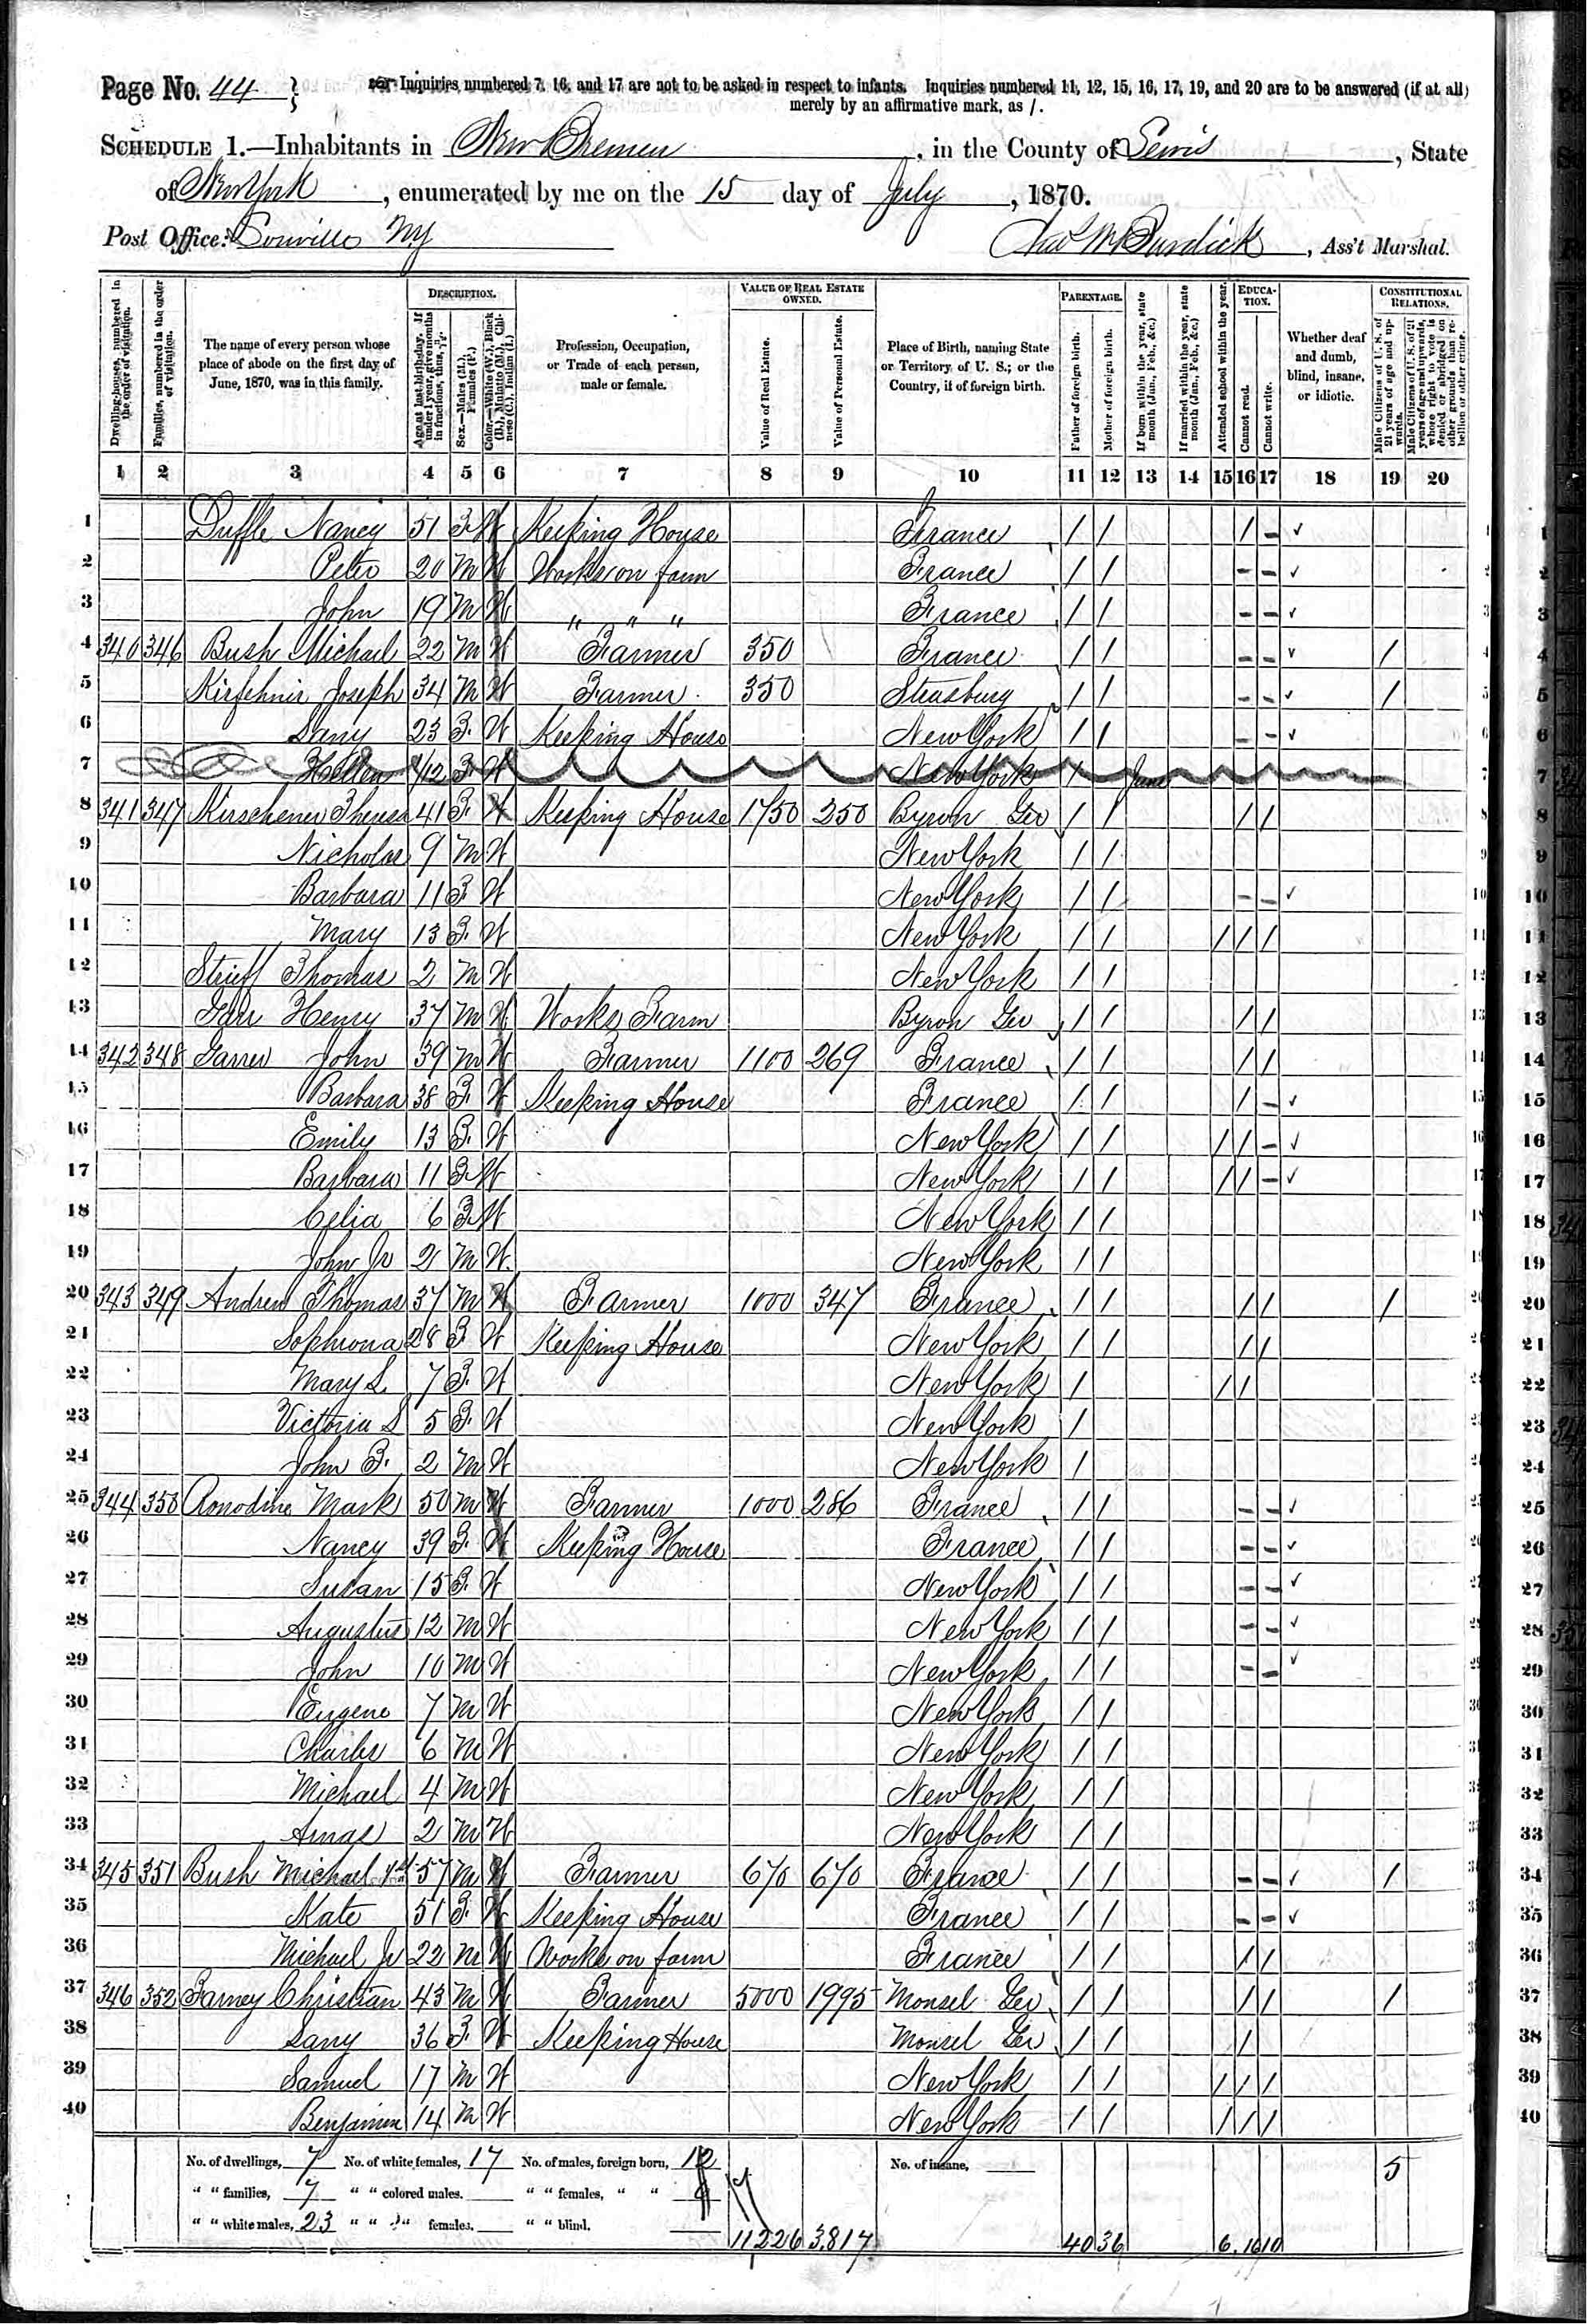 Page No. 44
Inquiries numbered 7, 16, and 17 are not to be asked in respect to infants. Inquiries numbered 11, 12, 15, 16, 17, 19, and 20 are to be answered (if at all)
merely by an affirmative mark, as /.
SCHEDULE 1.—Inhabitants in New Bremen, in the County of Lewis, State
of New York, enumerated by me on the 15 day of July, 1870.
Post Office: Lowville NY Chas M Burdick, Ass't Marshal.
Dwelling-houses, numbered in the order of visitation.
Families, numbered in the order of visitation.
The name of every person whose place of abode on the first day of June, 1870, was in this family.
DESCRIPTION.
Age at last birthday. If under 1 year, give months in fractions, thus, 3/12.
Sex.—Males (M.), Females (F.)
Color.—White (W.), Black (B.), Mulatto (M.), Chinese (C.), Indian (I.)
Profession, Occupation, or Trade of each person, male or female.
VALUE OF REAL ESTATE OWNED.
Value of Real Estate.
Value of Personal Estate.
Place of Birth, naming State or Territory of U. S.; or the Country, if of foreign birth.
PARENTAGE.
Father of foreign birth.
Mother of foreign birth.
If born within the year, state month (Jan., Feb., &c.)
If married within the year, state month (Jan., Feb., &c.)
Attended school within the year.
EDUCATION.
Cannot read.
Cannot write.
Whether deaf and dumb, blind, insane, or idiotic.
CONSTITUTIONAL RELATIONS.
Male Citizens of U. S. of 21 years of age and upwards.
Male Citizens of U. S. of 21 years of age and upwards, whose right to vote is denied or abridged on other grounds than rebellion or other crime.
1 2 3 4 5 6 7 8 9 10 11 12 13 14 15 16 17 18 19 20
1 Duffle Nancy 51 F W Keeping House France / / / - ✓ 1
2 Peter 20 M W Works on farm France / / - - ✓ 2
3 John 19 M W " " " France / / - - ✓ 3
4 340 346 Bush Michael 22 M W Farmer 350 France / / - - ✓ / 4
5 Joseph 34 M W Farmer 350 Strasburg / / - - ✓ / 5
6 Lany 23 F W Keeping House New York / / - - ✓ 6
7 Hellen 1/12 F W New York / June 7
8 341 347 Kirschener 41 F W Keeping House 1750 250 Byron Ger / / / / 8
9 Nicholas 9 M W New York / / 9
10 Barbara 11 F W New York / / - - ✓ 10
11 Mary 13 F W New York / / / / / 11
12 Strieff Thomas 2 M W New York / / 12
13 Henry 37 M W Works Farm Byron Ger / / / / 13
14 342 348 Garrer John 39 M W Farmer 1100 269 France / / / / 14
15 Barbara 38 F W Keeping House France / / / - ✓ 15
16 Emily 13 F W New York / / / / - ✓ 16
17 Barbara 11 F W New York / / / / - ✓ 17
18 Celia 6 F W New York / / 18
19 John Jr 2 M W New York / / 19
20 343 349 Andrew Thomas 37 M W Farmer 1000 347 France / / / / / 20
21 Sophrona 28 F W Keeping House New York / / / / 21
22 Mary L 7 F W New York / / / 22
23 Victoria S 5 F W New York / 23
24 John B. 2 M W New York / 24
25 344 350 Ronodine Mark 50 M W Farmer 1000 286 France / / - - ✓ 25
26 Nancy 39 F W Keeping House France / / - - ✓ 26
27 Susan 15 F W New York / / - - ✓ 27
28 Augustus 12 M W New York / / - - ✓ 28
29 John 10 M W New York / / - - ✓ 29
30 Eugene 7 M W New York / / 30
31 Charles 6 M W New York / / 31
32 Michael 4 M W New York / / 32
33 Amas 2 M W New York / / 33
34 345 351 Bush Michael 57 M W Farmer 670 670 France / / - - ✓ / 34
35 Kate 51 F W Keeping House France / / - - ✓ 35
36 Michael Jr 22 M W Works on farm France / / / / 36
37 346 352 Farney Christian 43 M W Farmer 5000 1995 Monsel Ger / / / / / 37
38 Lany 36 F W Keeping House Monsel Ger / / / 38
39 Samuel 17 M W New York / / / / / 39
40 Benjamin 14 M W New York / / / / / 40
No. of dwellings, 7 No. of white females, 17 No. of males, foreign born, 12 No. of insane, 5
" " families, 7 " " colored males. " " females, " "
" " white males, 23 " " " females, " " blind.
11226 3,817 40 36 6 16 10